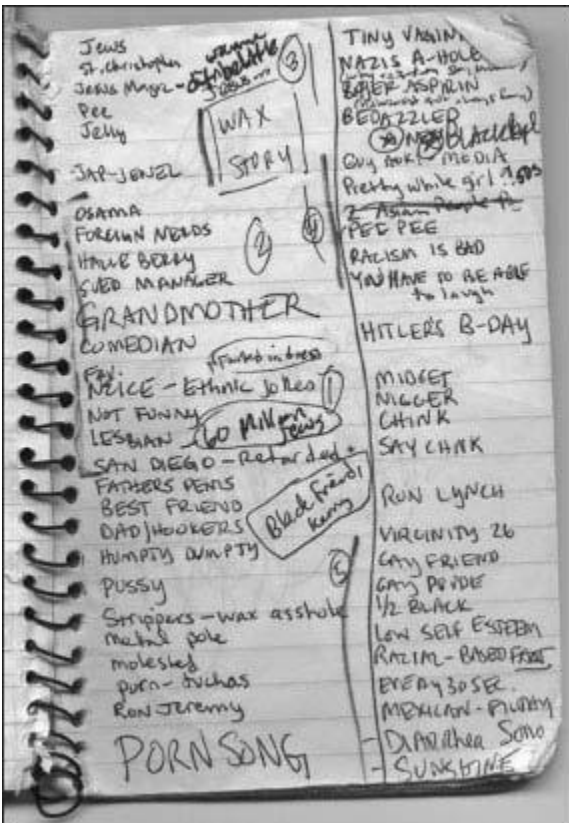 Jews
St. Christopher
Jesus Magic -
JESUS
3
Pee
Jelly
WAX
STORY
JAP-JEWEL
OSAMA
FOREIGN NERDS
2
4
HALLE BERRY
SUED MANAGER
GRANDMOTHER
COMEDIAN
Fav.
NEICE - Ethnic Jokes
1
NOT FUNNY
60 Million Jews
LESBIAN
SAN DIEGO - Retarded
FATHERS PENIS
BEST FRIEND
Black Friend/
Kerry
DAD/HOOKERS
HUMPTY DUMPTY
5
PUSSY
Strippers - wax asshole
metal pole
molested
porn - tuchas
RON JEREMY
PORN SONG
TINY VAGINA
NAZIS A-HOLE
BAYER ASPIRIN
BEDAZZLER
BLACK Ppl
GUY AOK! MEDIA
Pretty white girl
2 Asian People
PEE PEE
RACISM IS BAD
YOU HAVE TO BE ABLE
to laugh
HITLER'S B-DAY
MIDGET
NIGGER
CHINK
SAY CHINK
RUN LYNCH
VIRGINITY 26
GAY FRIEND
GAY PRIDE
1/2 BLACK
LOW SELF ESTEEM
RACIAL-BASED FACT
EVERY 30 SEC.
MEXICAN-
- DIARRHEA SONG
- SUNSHINE